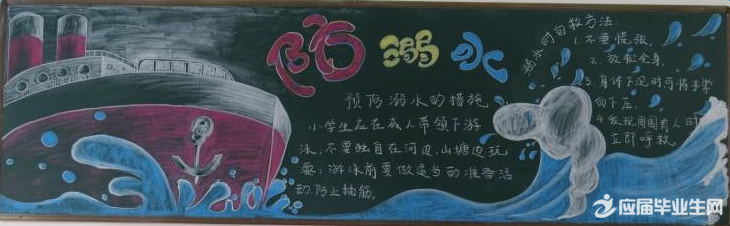 防溺水
预防溺水的措施
小学生应在成人带领下游
泳；不要独自在河边、山塘边玩
耍；游泳前要做适当的准备活
动防止抽筋。
溺水的自救方法
1.不要慌张.
2.放松全身.
3.身体下沉时可将手掌
向下压.
4.发现周围有人时
立即呼救
应届毕业生网